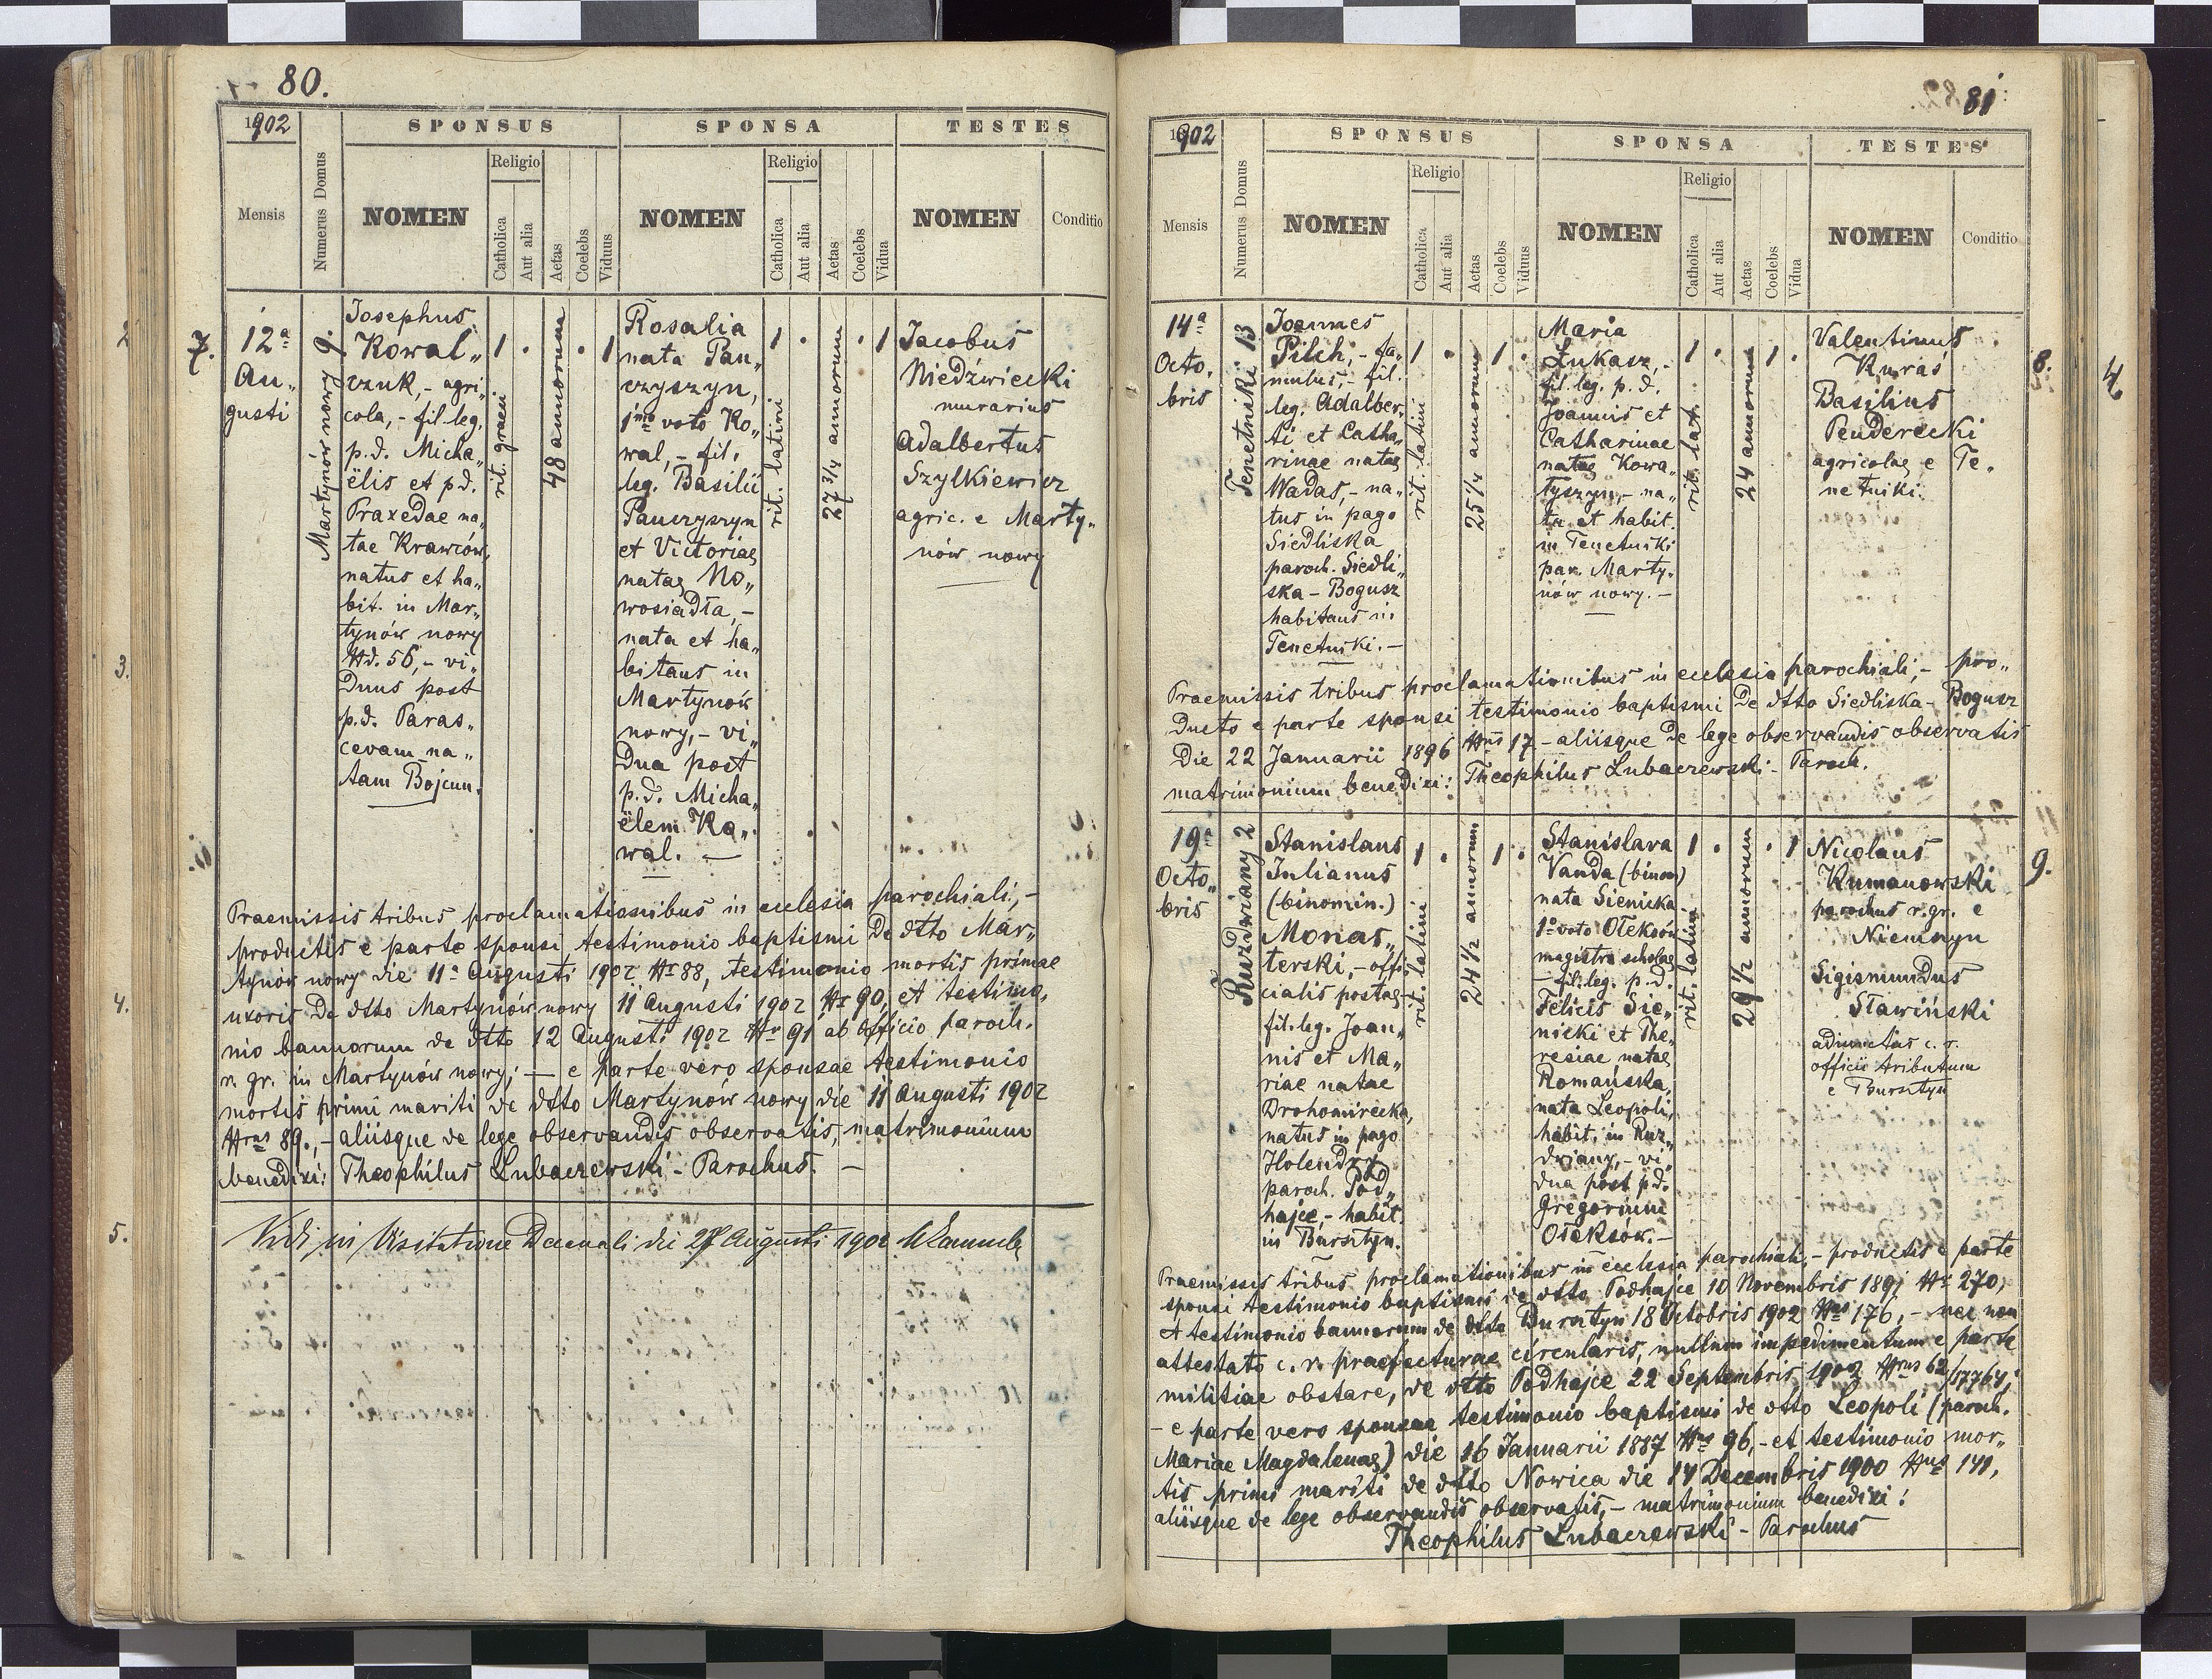 80.
1902
Numerus Domus
SPONSUS
SPONSA
TESTES
Mensis
NOMEN
Religio
Catholica
Aut alia
Aetas
Coelebs
Viduus
NOMEN
Religio
Catholica
Aut alia
Aetas
Coelebs
Vidua
NOMEN
Conditio
7.
12a
Au„
gusti
Martynów nowy 9.
Josephus
Kowal„
czuk, - agri„
cola, - fil. leg.
p.d. Micha„
ëlis et p.d.
Praxedae na„
tae Krawców,
natus et ha„
bit. in Mar„
tynów nowy
Nd. 56, - vi„
duus post
p.d. Paras„
cevam na„
tam Bojcun.
1 .
rit. graeci
48 annorum
. 1
Rosalia
nata Pan„
czyszyn,
1mo voto Ko„
wal, - fil.
leg. Basilii
Panczyszyn
et Victoriae
natae No„
wosiadła, -
nata et ha„
bitans in
Martynów
nowy, - vi„
dua post
p.d. Micha„
ëlem Ko„
wal. —
1 .
rit. latini
27 3/4 annorum
. 1
Jacobus
Niedźwiecki
murarius
Adalbertus
Szylkiewicz
agric. e Marty„
nów nowy
Praemissis tribus proclamationibus in ecclesia parochiali, -
productis e parte sponsi testimonio baptismi de dtto Mar„
tynów nowy die 11a Augusti 1902 Nr 88, testimonio mortis primae
uxoris de dtto Martynów nowy 11 Augusti 1902 Nr 90, et testimo„
nio bannorum de dtto 12 Augusti 1902 Nr 91 ab officio paroch.
r. gr. in Martynów nowy; — e parte vero sponsae testimonio
mortis primi mariti de dtto Martynów nowy die 11 Augusti 1902
Nrus 89., - aliisque de lege observandis observatis, matrimonium
benedixi: Theophilus Lubaczewski - Parochus. —
Vidi in Visitatione Decanali die 27 Augusti 1902
81
1902
Numerus Domus
SPONSUS
SPONSA
TESTES
Mensis
NOMEN
Religio
Catholica
Aut alia
Aetas
Coelebs
Viduus
NOMEN
Religio
Catholica
Aut alia
Aetas
Coelebs
Vidua
NOMEN
Conditio
14a
Octo„
bris
Tenetniki 13
Joannes
Pilch, - fa„
mulus, - fil.
leg. Adalber„
ti et Catha„
rinae natae
Wadas, - na„
tus in pago
Siedliska
paroch. Siedli„
ska - Bogusz
habitans in
Tenetniki. —
1 .
rit. latini
25 1/4 annorum
1 .
Maria
Łukasz, -
fil. leg. p.d.
Joannis et
Catharinae
natae Kowa„
łyszyn, - na„
ta et habit.
in Tenetniki
par. Marty„
nów nowy. —
1 .
rit. lat.
24 annorum
1 .
Valentinus
Kuraś
Basilius
Penderecki
agricolae e Te„
netniki.
8.
Praemissis tribus proclamationibus in ecclesia parochiali, - pro„
ducto e parte sponsi testimonio baptismi de dtto Siedliska - Bogusz
die 22 Januarii 1896 Nrus 17 - aliisque de lege observandis observatis
matrimonium benedixi: Theophilus Lubaczewski - Paroch.
19a
Octo„
bris
Ruzdwiany 2
Stanislaus
Julianus
(binomin.)
Monas„
terski, - offi„
cialis postae
fil. leg. Joan„
nis et Ma„
riae natae
Drohomirecka,
natus in pago
Holendry
paroch. Pod„
hajce, - habit.
in Bursztyn.
1 .
rit. latini
24 1/2 annorum
1 .
Stanislava
Vanda (binom)
nata Sienicka
1o voto Ołeksów
magistra scholae
- fil. leg. p.d.
Felicis Sie„
nicki et The„
resiae natae
Romańska,
nata Leopoli,
habit. in Ruz„
dwiany, - vi„
dua post p.d.
Gregorium
Ołeksów. —
1 .
rit. latini
29 1/2 annorum
. 1
Nicolaus
Kumanowski
parochus r. gr. e
Niemszyn
Sigismundus
Sławiński
adiunctus c. r.
officii tributum
e Bursztyn
9.
Praemissis tribus proclamationibus in ecclesia parochiali, - productis e parte
sponsi testimonio baptismi de dtto Podhajce 10 Novembris 1891 Nr 270,
et testimonio bannorum de dtto Bursztyn 18 Octobris 1902 Nrus 176, - nec non
attestato c. r. praefecturae circularis, nullum impedimentum e parte
militiae obstare, de dtto Podhajce 22 Septembris 1902 Nrus 62/17764;
- e parte vero sponsae testimonio baptismi de dtto Leopoli (paroch.
Mariae Magdalenae) die 16 Januarii 1887 Nrus 96, - et testimonio mor„
tis primi mariti de dtto Nowica die 14 Decembris 1900 Nrus 141,
aliisque de lege observandis observatis, - matrimonium benedixi!
Theophilus Lubaczewski - Parochus
2
3.
4.
5.
4